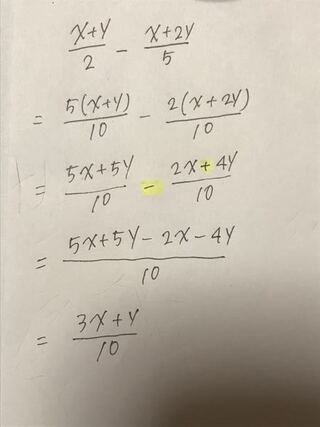 x+y/2 - x+2y/5
= 5(x+y)/10 - 2(x+2y)/10
= 5x+5y/10 - 2x+4y/10
= 5x+5y-2x-4y/10
= 3x+y/10